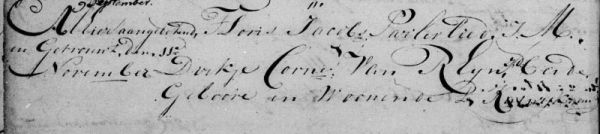 September.
Alhier aangetekend, Floris Jacobs Parlevliet, J. M.
en Getrouwt, den 11e
November Dirkje Corns. Van Rhyn, J.D. Beide
Geboore en Woonende